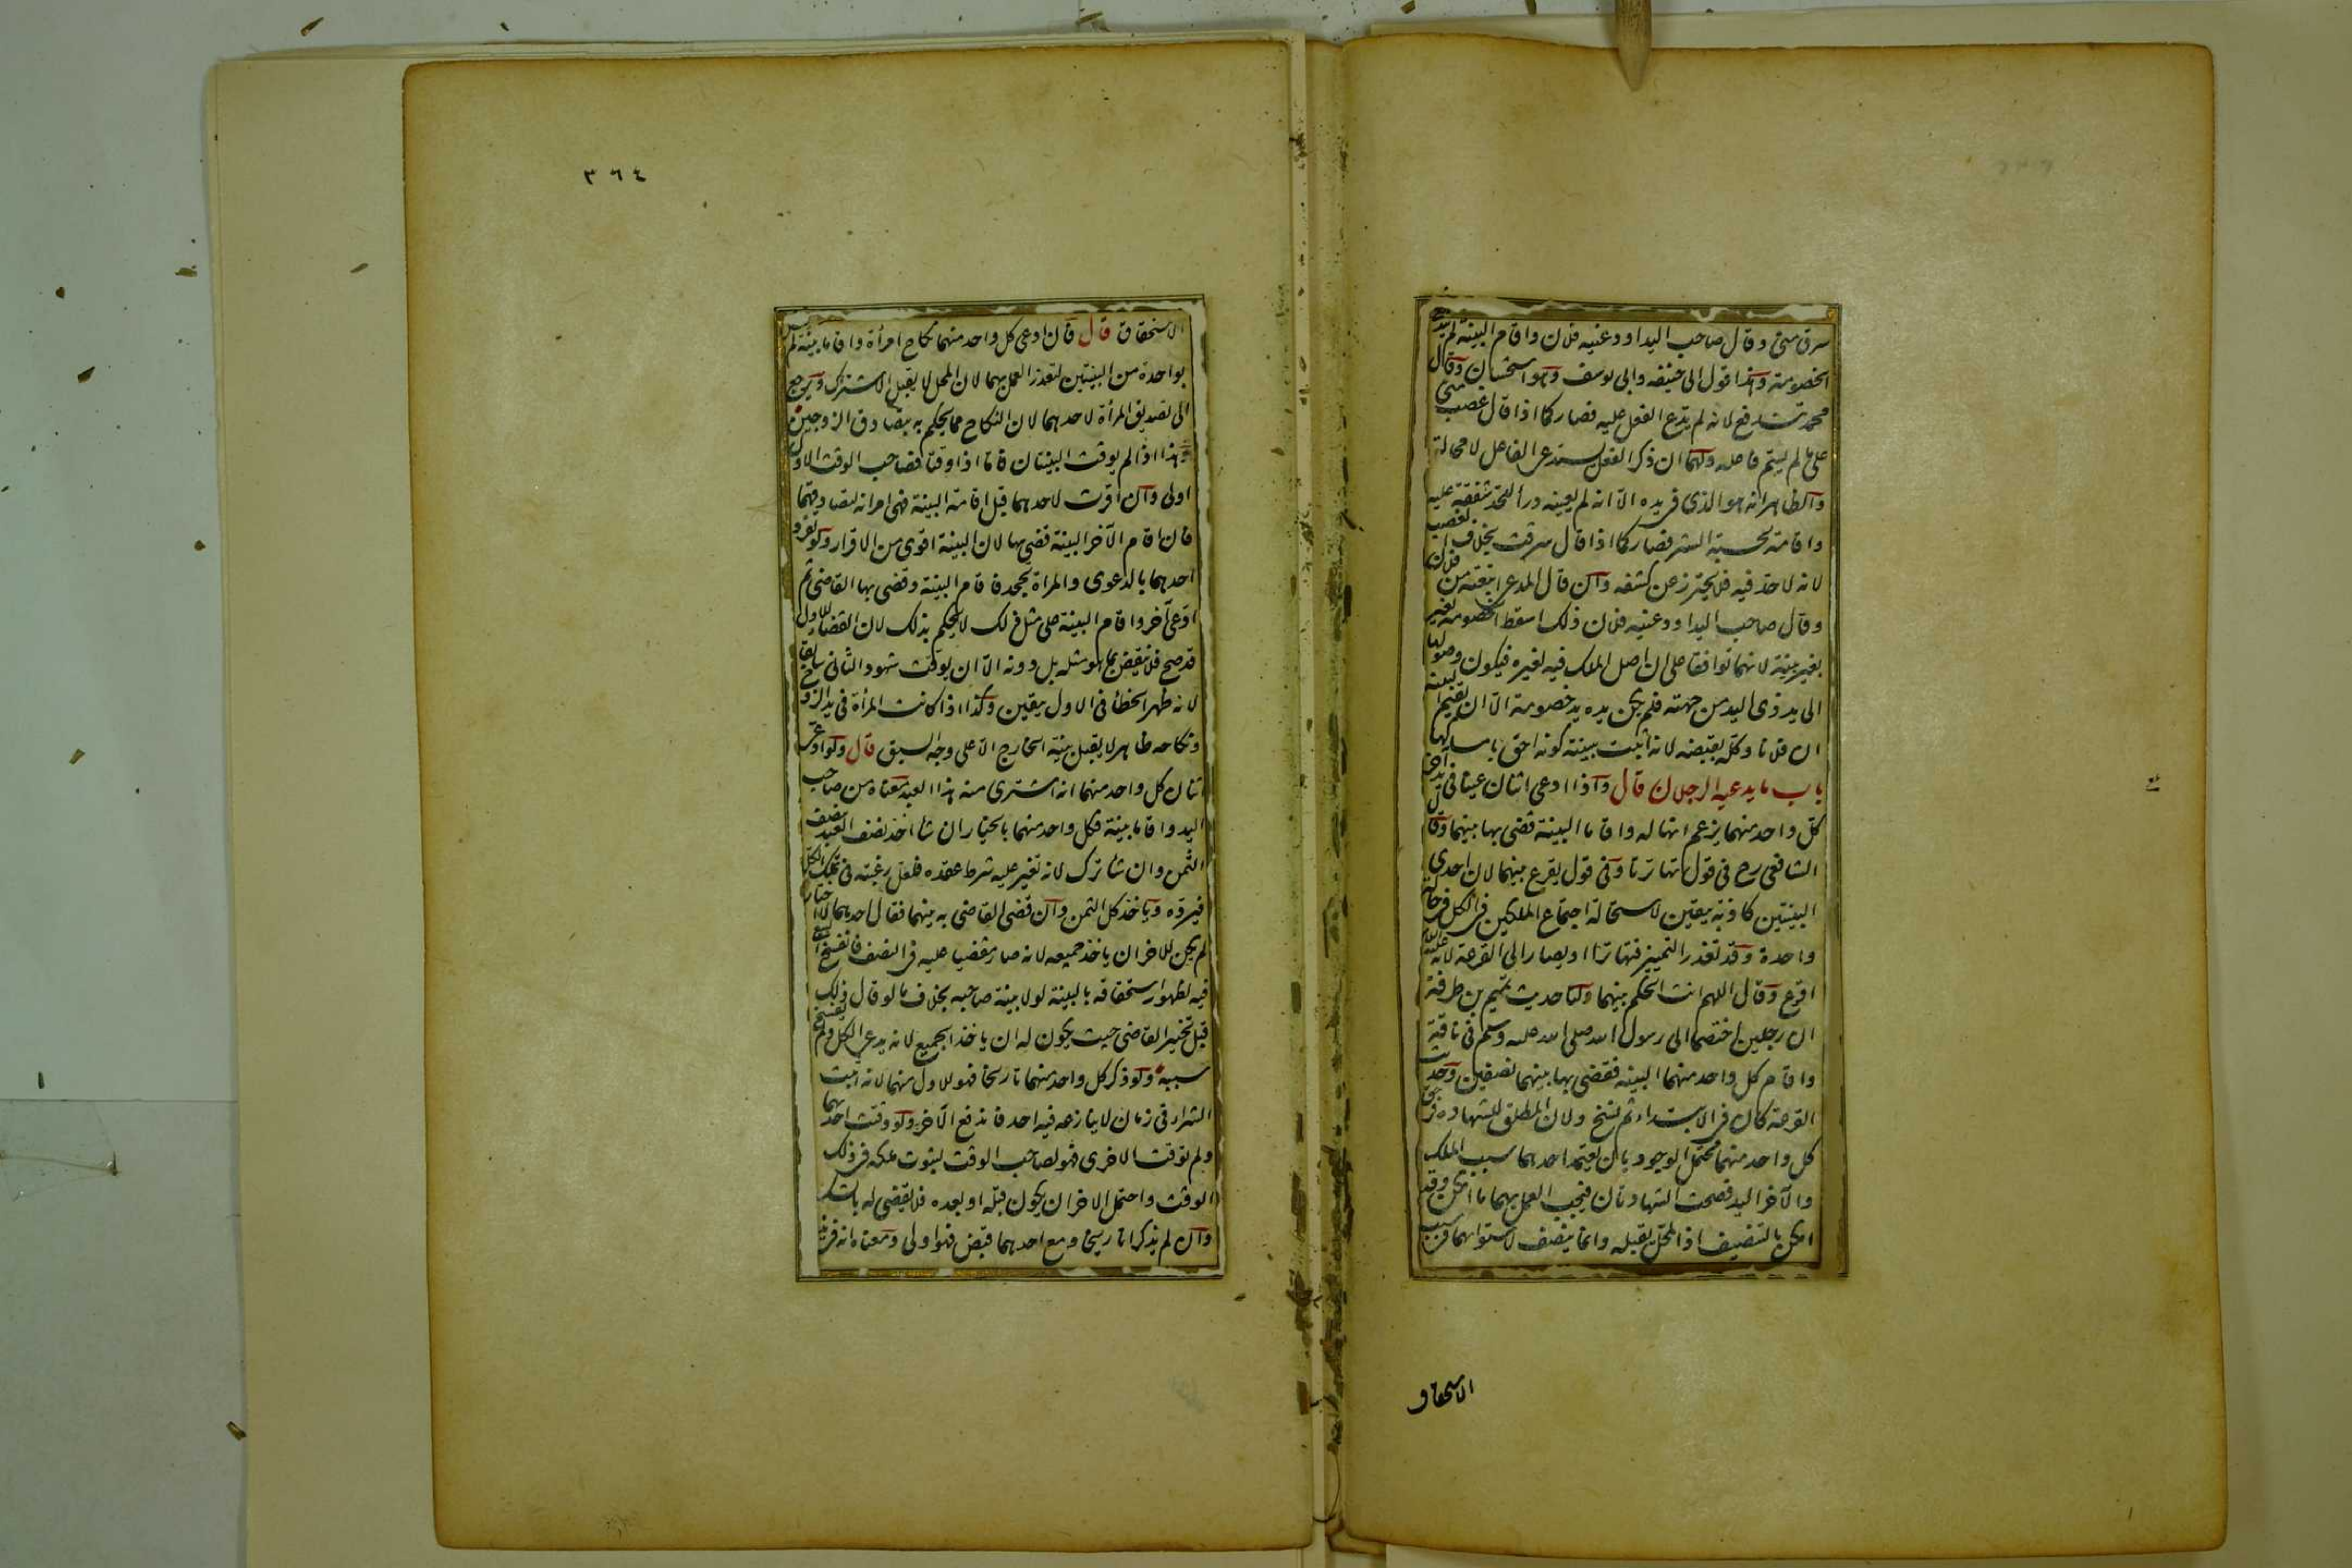 سرق منى وقال صاحب اليد اودعنيه فلان واقام البينة لم يندفع
الخصومة وهذا قول ابى حنيفه وابى يوسف وهو استحسان وقال
محمد تندفع لانه لم يدّع الفعل عليه فصار كما اذا قال غصب منى
على ما لم يسمّ فاعله ولهما ان ذكر الفعل يستدعى الفاعل لا محالة
والظاهر انه هو الذى فى يده الّا انه لم يعينه درأ للحد شفقة عليه
واقامة لحسبة الستر فصار كما اذا قال سرقت بخلاف الغصب
لانه لا حدّ فيه فلا يحترز عن كشفه وان قال المدعى ابتعته من فلان
وقال صاحب اليد اودعنيه فلان ذلك اسقط الخصومة بغير
بغير بينة لانهما توافقا على ان اصل الملك فيه لغيره فيكون وصولها
الى يد ذى اليد من جهته فلم يكن يده يد خصومة الّا ان يقيم البينة
ان فلانا وكّله بقبضه لانه اثبت ببينته كونه احق بامساكها
باب ما يدعيه الرجلان قال واذا ادعى اثنان عينا فى يد آخر
كلّ واحد منهما يزعم انها له واقاما البينة قضى بها بينهما وقال
الشافعى رح فى قول تهاترتا وفى قول يقرع بينهما لان احدى
البينتين كاذبة بيقين لاستحالة اجتماع الملكين فى الكل فى حالة
واحدة وقد تعذر التمييز فتهاترتا او يصار الى القرعة لانه عليه
اقرع وقال اللهم انت الحكم بينهما ولنا حديث تميم بن طرفة
ان رجلين اختصما الى رسول الله صلى الله عليه وسلم فى ناقة
واقام كل واحد منهما البينة فقضى بها بينهما نصفين وحديث
القرعة كان فى الابتداء ثم نسخ ولان المطلق للشهادة فى حق
كل واحد منهما محتمل الوجود بان يعتمد احدهما سبب الملك
والآخر اليد فصحت الشهادتان فيجب العمل بهما ما امكن وقد
امكن بالتنصيف اذ المحل يقبله وانما ينصف لاستوائهما فى سبب
الاستحقاق
٣٦٤
الاستحقاق قال فان ادعى كل واحد منهما نكاح امرأة واقاما بينة لم
بواحدة من البينتين لتعذر العمل بهما لان المحل لا يقبل الاشتراك ويرجع
الى تصديق المرأة لاحدهما لان النكاح مما يحكم به بتصادق الزوجين
وهذا اذا لم يوقت البينتان فاما اذا وقتا فصاحب الوقت الاول
اولى وان اقرت لاحدهما قبل اقامة البينة فهى امرأته لتصادقهما
فان اقام الآخر البينة قضى بها لان البينة اقوى من الاقرار ولو تفرد
احدهما بالدعوى والمراة تجحد فاقام البينة وقضى بها القاضى ثم
ادّعى آخر واقام البينة على مثل ذلك لا يحكم بذلك لان القضاء الاول
قد صح فلا ينقض بما هو مثله بل دونه الّا ان يوقت شهود الثانى سابقا
لانه ظهر الخطأ فى الاول بيقين وكذا اذا كانت المرأة فى يد الزوج
ونكاحه ظاهر لا يقبل بينة الخارج الّا على وجه السبق قال ولو ادعى
اثنان كل واحد منهما انه اشترى منه هذا العبد معناه من صاحب
اليد واقاما بينة فكل واحد منهما بالخيار ان شا اخذ نصف العبد بنصف
الثمن وان شا ترك لانه تغير عليه شرط عقده فلعل رغبته فى تملك الكل
فيرده وياخذ كل الثمن وان قضى القاضى به بينهما فقال احدهما لا اختار
لم يكن للاخر ان ياخذ جميعه لانه صار مقضيا عليه فى النصف فانفسخ البيع
فيه لظهور استحقاقه بالبينة لولا بينة صاحبه بخلاف ما لو قال ذلك
قبل تخيير القاضى حيث يكون له ان ياخذ الجميع لانه يدعى الكل ولم يفسخ
سببه ولو ذكر كل واحد منهما تاريخا فهو للاول منهما لانه اثبت
الشراء فى زمان لا ينازعه فيه احد فاندفع الآخر ولو وقتت احديهما
ولم توقت الاخرى فهو لصاحب الوقت لثبوت ملكه فى ذلك
الوقت واحتمل الاخر ان يكون قبله او بعده فلا يقضى له بالشك
وان لم يذكرا تاريخا ومع احدهما قبض فهو اولى ومعناه انه فى يده